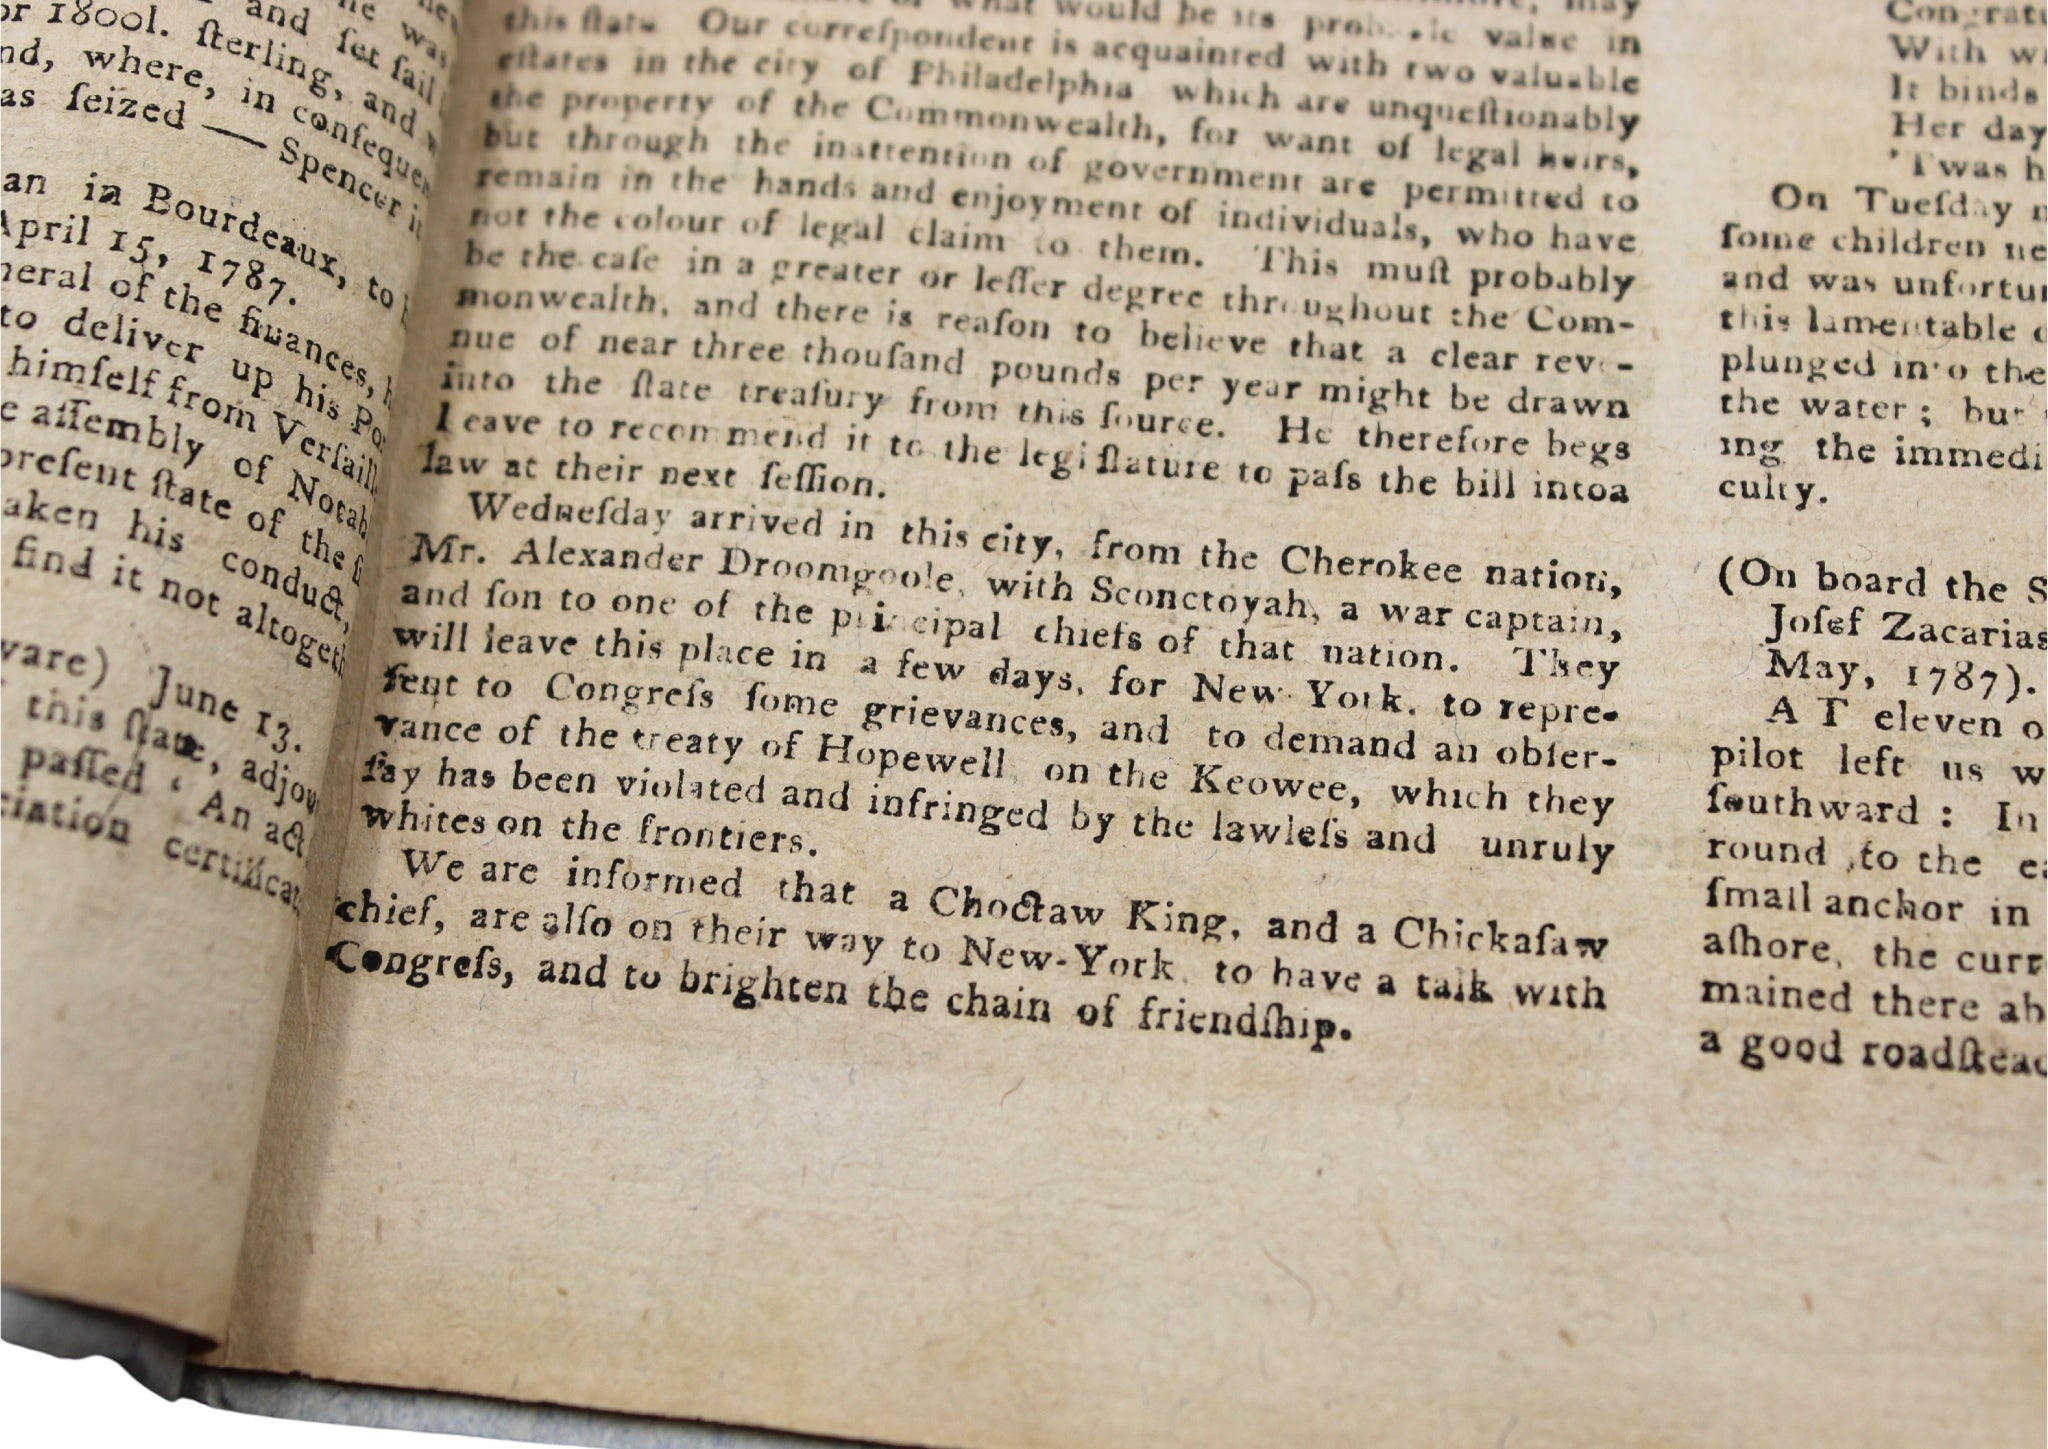 and set sail
or 1800l. ſterling, and
nd, where, in conſequen
as ſeized — Spencer
an in Bourdeaux, to
April 15, 1787.
neral of the finances,
to deliver up his
himſelf from Verſaill
e aſſembly of Notab
preſent ſtate of the
aken his conduct,
find it not altogeth
ware) June 13.
this ſtate, adjou
paſſed An act
ciation certificat
what would be its value in
this ſtate Our correſpondent is acquainted with two valuable
eſtates in the city of Philadelphia which are unqueſtionably
the property of the Commonwealth, for want of legal heirs,
but through the inattention of government are permitted to
remain in the hands and enjoyment of individuals, who have
not the colour of legal claim to them. This muſt probably
be the caſe in a greater or leſſer degree throughout the Com-
monwealth, and there is reaſon to believe that a clear reve-
nue of near three thouſand pounds per year might be drawn
into the ſtate treaſury from this ſource. He therefore begs
leave to recommend it to the legiſlature to paſs the bill intoa
law at their next ſeſſion.
Wedneſday arrived in this city, from the Cherokee nation,
Mr. Alexander Droomgoole, with Sconctoyah, a war captain,
and ſon to one of the principal chiefs of that nation. They
will leave this place in a few days, for New York, to repre-
ſent to Congreſs ſome grievances, and to demand an obſer-
vance of the treaty of Hopewell on the Keowee, which they
ſay has been violated and infringed by the lawleſs and unruly
whites on the frontiers.
We are informed that a Choctaw King, and a Chickaſaw
chief, are alſo on their way to New-York to have a talk with
Congreſs, and to brighten the chain of friendſhip.
Congratu
With
It binds
Her day
'Twas h
On Tueſday
ſome children ne
and was unfortun
this lamentable
plunged into the
the water; but
ing the immedi
culty.
(On board the S
Joſef Zacarias
May, 1787).
AT eleven o
pilot left us w
ſouthward: In
round to the ea
ſmall anchor in
aſhore, the curr
mained there ab
a good roadſtead